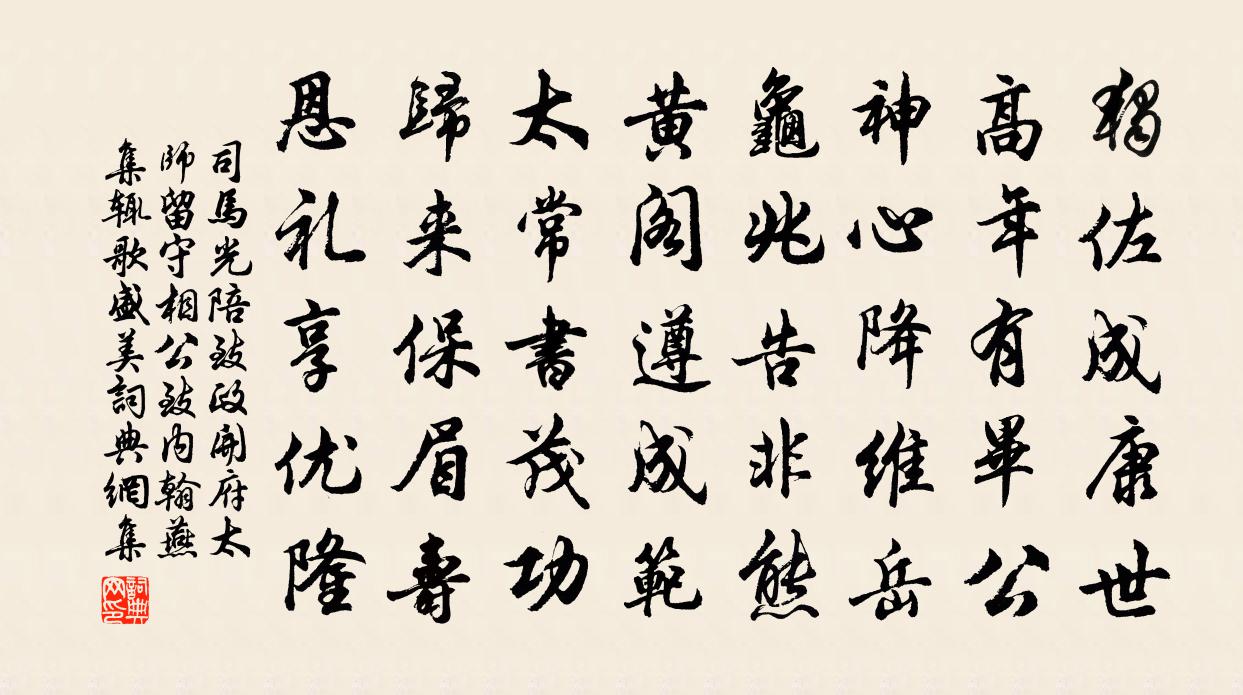 獨佐成康世
高年有畢公
神心降維岳
龜兆告非熊
黄阁遵成範
太常書茂功
歸来保眉壽
恩礼享优隆
司馬光陪致政開府太
師留守相公致内翰燕
集輒歌盛美詞典網集
詞典网印